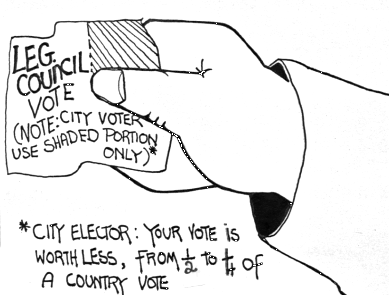 LEG.
COUNCIL
VOTE
(NOTE: CITY VOTER
USE SHADED PORTION
ONLY)*
*CITY ELECTOR: YOUR VOTE IS
WORTH LESS, FROM ½ TO ¼ OF
A COUNTRY VOTE